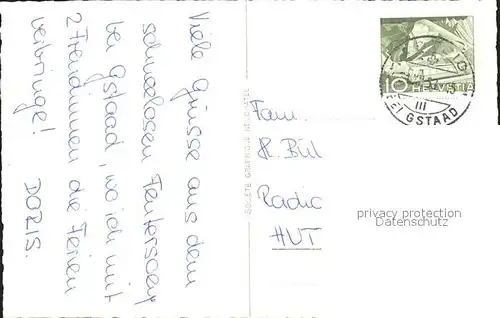 Viele Grüsse aus dem
schneelosen Feutersoey
bei Gstaad, wo ich mit
2 Freundinnen die Ferien
verbringe!
DORIS.
SOCIÉTÉ GRAPHIQUE NEUCHATEL
10 HELVETIA
III
GSTAAD
Fam.
H. Bül
Radio
HUT
privacy protection
Datenschutz